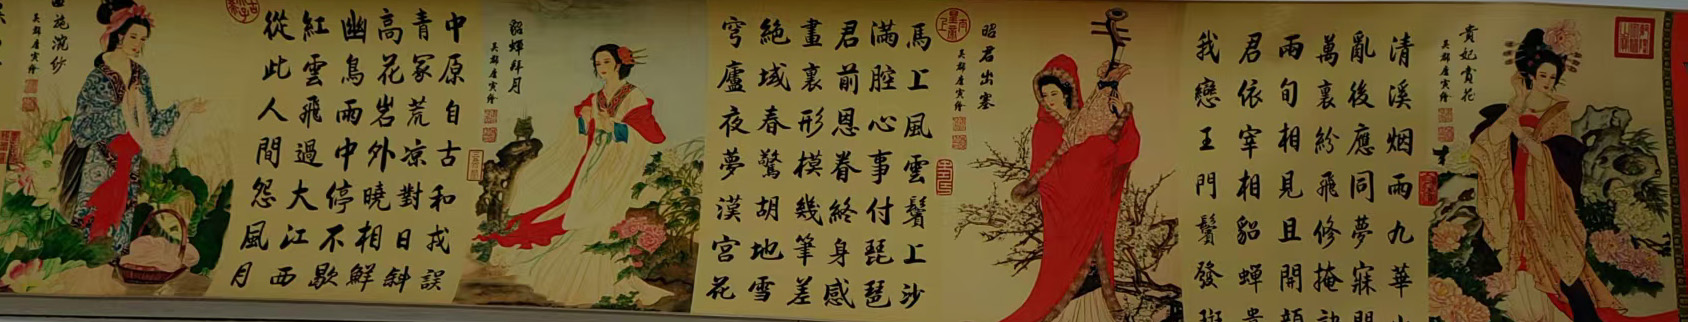 貴妃賞花
吳郡唐寅繪
清溪烟雨九華
亂後應同夢寐間
萬裏紛飛修掩
雨旬相見且開顔
君依宰相貂蟬貴
我戀王門鬢發斑
昭君出塞
吳郡唐寅繪
馬上風雲鬢上沙
滿腔心事付琵琶
君前恩眷終身感
畫裏形模幾筆差
絕域春驚胡地雪
穹廬夜夢漠宮花
貂蟬拜月
吳郡唐寅繪
中原自古和戎誤
青冢荒凉對日斜
高花岩外曉相鮮
幽鳥雨中停不歇
紅雲飛過大江西
從此人間怨風月
西施浣紗
吳郡唐寅繪